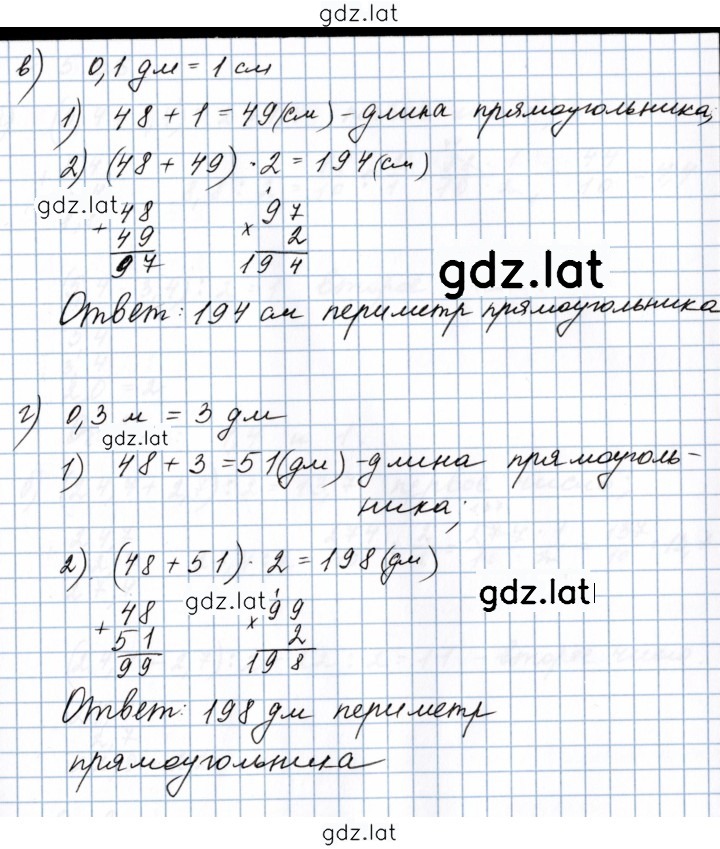 gdz.lat
в) 0,1 дм = 1 см
1) 48 + 1 = 49 (см) - длина прямоугольника,
2) (48 + 49) · 2 = 194 (см)
gdz.lat
+ 48
49
97
× 97
2
194
gdz.lat
Ответ: 194 см периметр прямоугольника
г) 0,3 м = 3 дм
gdz.lat
1) 48 + 3 = 51 (дм) - длина прямоуголь-
ника;
2) (48 + 51) · 2 = 198 (дм)
gdz.lat
gdz.lat
+ 48
51
99
× 99
2
198
Ответ: 198 дм периметр
прямоугольника
gdz.lat